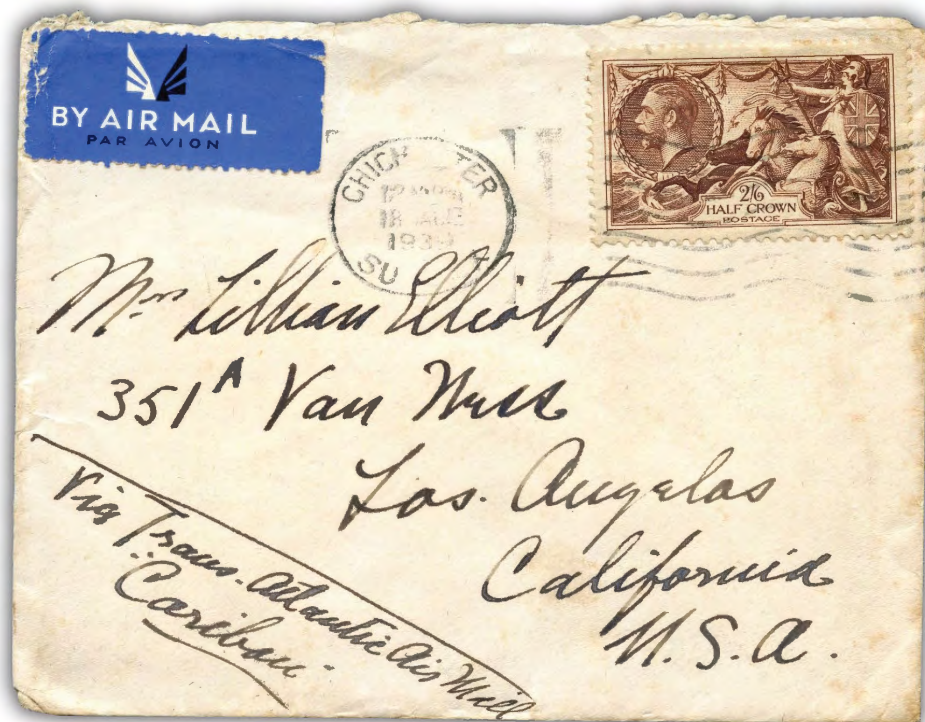 BY AIR MAIL
PAR AVION
CHICH TER
18 AUG
193
SU
2/6
HALF CROWN
POSTAGE
Mrs Lillian Elliott
351A Van Ness
Los. Angelas
California
U.S.A.
Via Trans-Atlantic Air Mail
"Caribou"